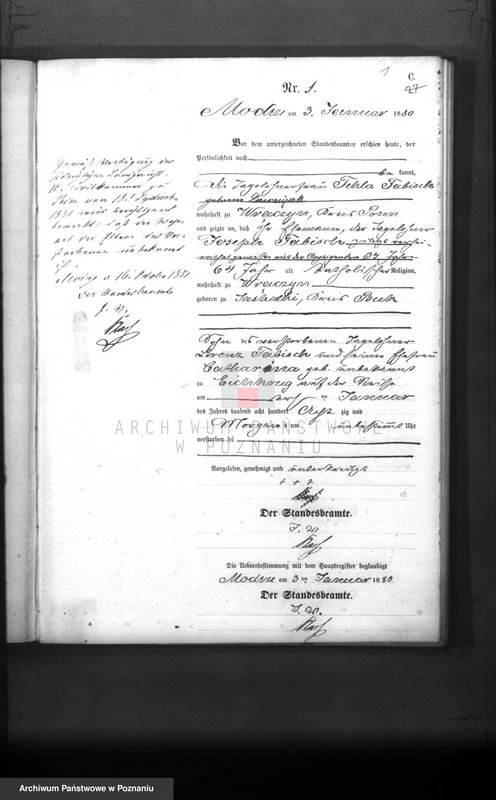 C.
1
27
Nr. 1.
Modrze am 3. Januar 1880
Vor dem unterzeichneten Standesbeamten erschien heute, der
Persönlichkeit nach
be kannt,
die Tagelöhnerfrau Thekla Tabisch
geborene
wohnhaft zu Wronczyn, Kreis Posen
und zeigte an, daß ihr Ehemann, der Tagelöhner
Joseph Tabisch
64 Jahr alt katholischer Religion,
wohnhaft zu Wronczyn
geboren zu Kreis Buk
Sohn des verstorbenen Tagelöhner
Lorenz Tabisch und seiner Ehefrau
Catharina geb. unbekannt
zu auf der Reise
am ersten Januar
des Jahres tausend acht hundert acht zig und
Morgens um unbestimmt Uhr
verstorben sei
Vorgelesen, genehmigt und unterkreuzt
+ + +
Der Standesbeamte.
I. V.
Die Uebereinstimmung mit dem Hauptregister beglaubigt
Modrze am 3ten Januar 1880
Der Standesbeamte.
I. V.
Gemäß Verfügung des
Königlichen Landgerichts
Posen vom 18. September
1881 wird berichtigend
vermerkt, daß der
der Eltern des Ver-
storbenen unbekannt
Modrze d 16. October 1881
Der Standesbeamte
I. V.
ARCHIWUM PAŃSTWOWE
W POZNANIU
Archiwum Państwowe w Poznaniu